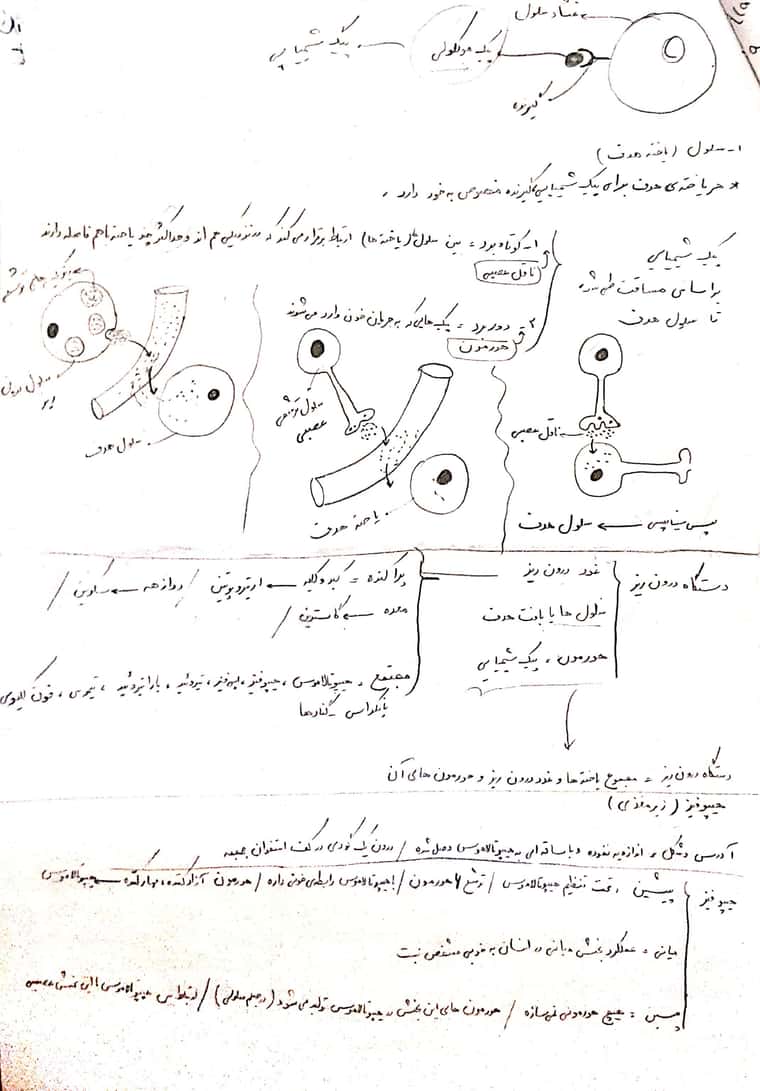 غشاء سلول
پیک مولکولی ← پیک شیمیایی
گیرنده
۱- سلول (یاخته هدف)
* هر یاخته‌ی هدف برای پیک شیمیایی گیرنده مخصوص به خود دارد.
پیک شیمیایی
براساس مسافت طی شده
تا سلول هدف
۱- کوتاه برد = بین سلول‌ها (یاخته ها) ارتباط برقرار می‌کند که در نزدیکی هم اند و حداکثر چند یاخته باهم فاصله دارند
ناقل عصبی
۲- دوربرد = پیک‌هایی که به جریان خون وارد می‌شوند
هورمون
ناقل عصبی
پس سیناپسی ← سلول هدف
سلول ترشحی
عصبی
یاخته هدف
سلول درون
ریز
سلول هدف
دستگاه درون ریز
غدد درون ریز
سلول ها یا بافت هدف
هورمون، پیک شیمیایی
پراکنده = کبد و کلیه ← اریتروپویتین / دوازدهه ← سکرتین /
معده ← گاسترین /
مجتمع، هیپوتالاموس، هیپوفیز، اپی‌فیز، تیروئید، پاراتیروئید، تیموس، فوق کلیوی
پانکراس، گنادها
دستگاه درون ریز = مجموع یاخته‌ها و غدد درون ریز و هورمون های آن
هیپوفیز (زیرمغزی)
آدرس و شکل = اندازه یه نخوده و با ساقه ای به هیپوتالاموس وصل شده / درون یک گودی در کف استخوان جمجمه
هیپوفیز
پیشین، تحت تنظیم هیپوتالاموس / ترشح ۶ هورمون / با هیپوتالاموس رابطه‌ی خونی داره / هورمون آزادکننده، مهارکننده ← هیپوتالاموس
میانی = عملکرد بخش میانی در انسان به خوبی مشخص نیست
پسین = هیچ هورمونی نمی‌سازه / هورمون های این بخش در هیپوتالاموس تولید می‌شود (در جسم سلولی) / ارتباط هیپوتالاموس با این بخش عصبی